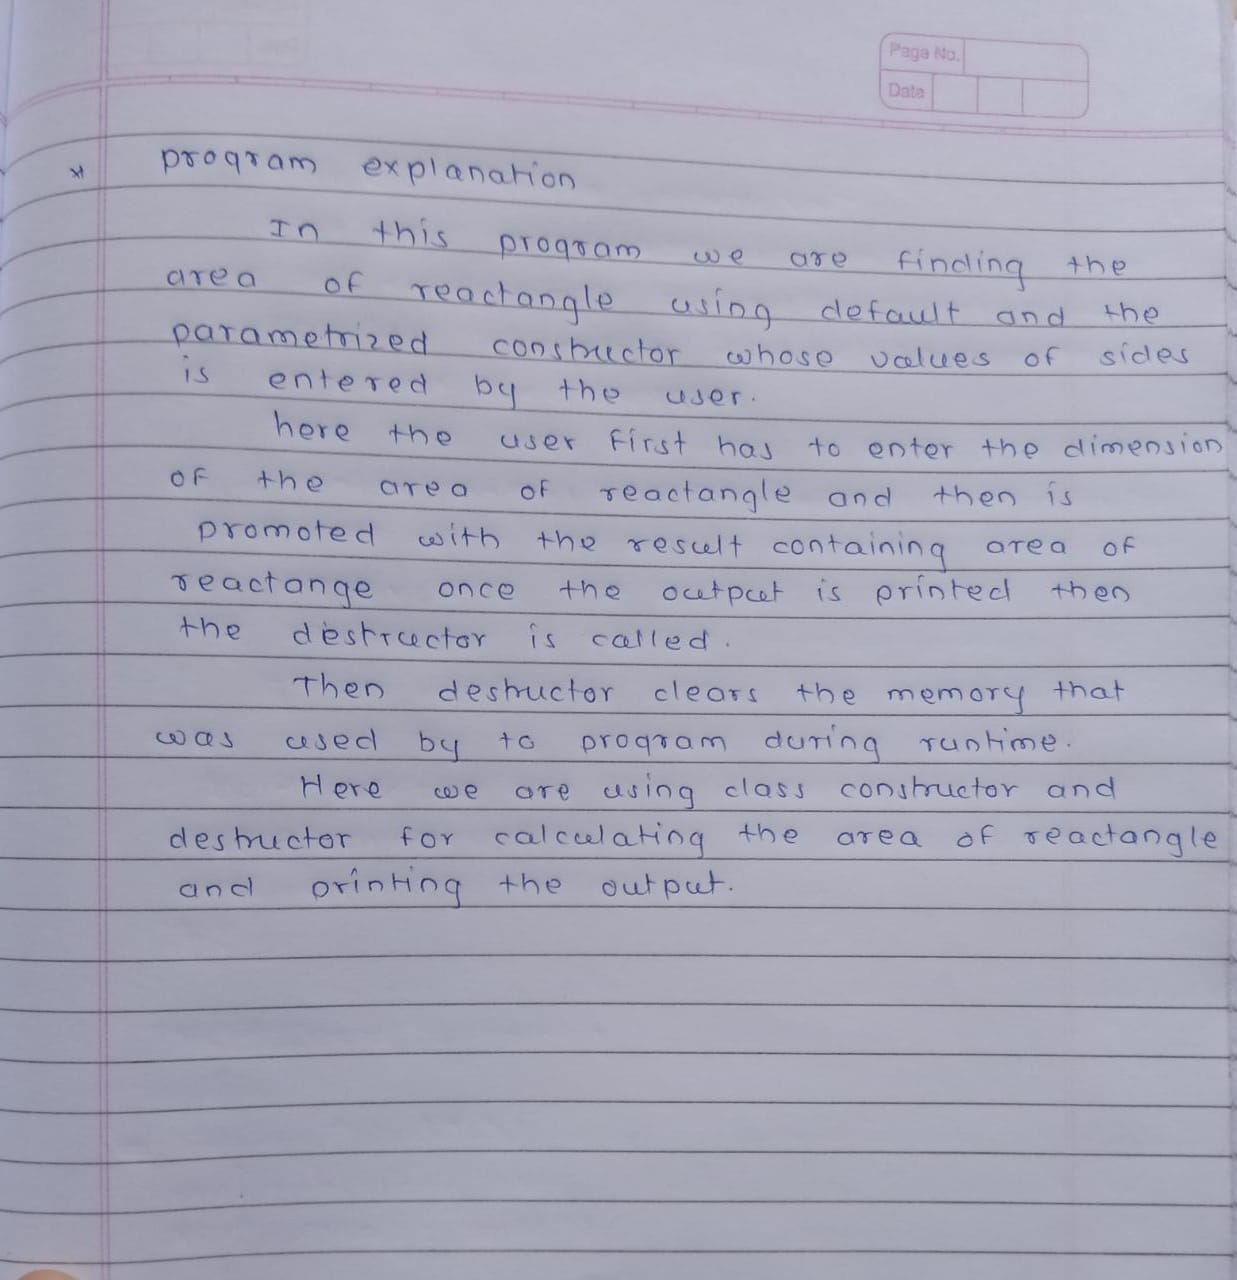 Page No.
Date
* program explanation
In this program we are finding the
area of reactangle using default and the
parametrized constructor whose values of sides
is entered by the user.
here the user first has to enter the dimension
of the area of reactangle and then is
promoted with the result containing area of
reactange once the output is printed then
the destructor is called.
Then destructor clears the memory that
was used by to program during runtime.
Here we are using class constructor and
destructor for calculating the area of reactangle
and printing the output.